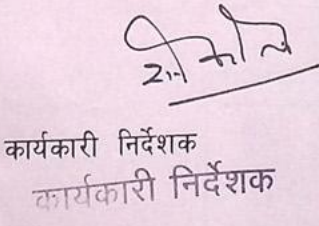 कार्यकारी निर्देशक
कार्यकारी निर्देशक